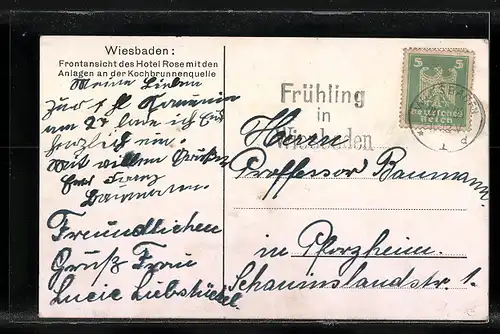 Wiesbaden:
Frontansicht des Hotel Rose mit den
Anlagen an der Kochbrunnenquelle
Meine Lieben
Zur
am 27 lade ich Euch
herzlich ein.
Mit vielen Grüßen
Euer Franz
Baumann.
Freundlichen
Gruß Frau
Lucie Liebstückel.
Frühling
in
Wiesbaden
5 5
Deutsches
Reich
Herrn
Professor Baumann
in Pforzheim.
Schauinslandstr. 1.